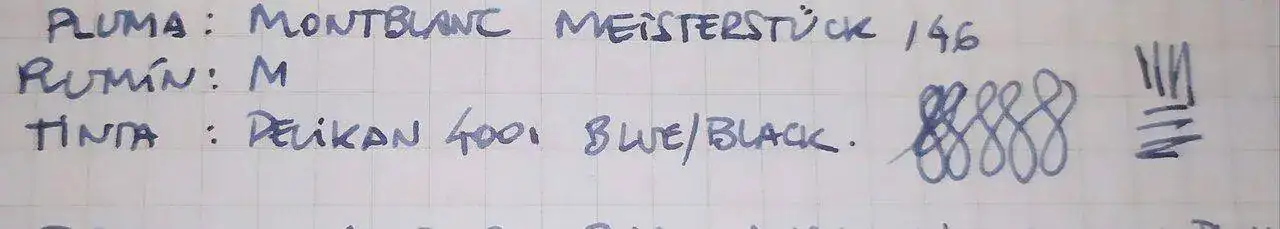 PLUMA: MONTBLANC MEISTERSTÜCK 146
PLUMÍN: M
TINTA: PELIKAN 4001 BLUE/BLACK.